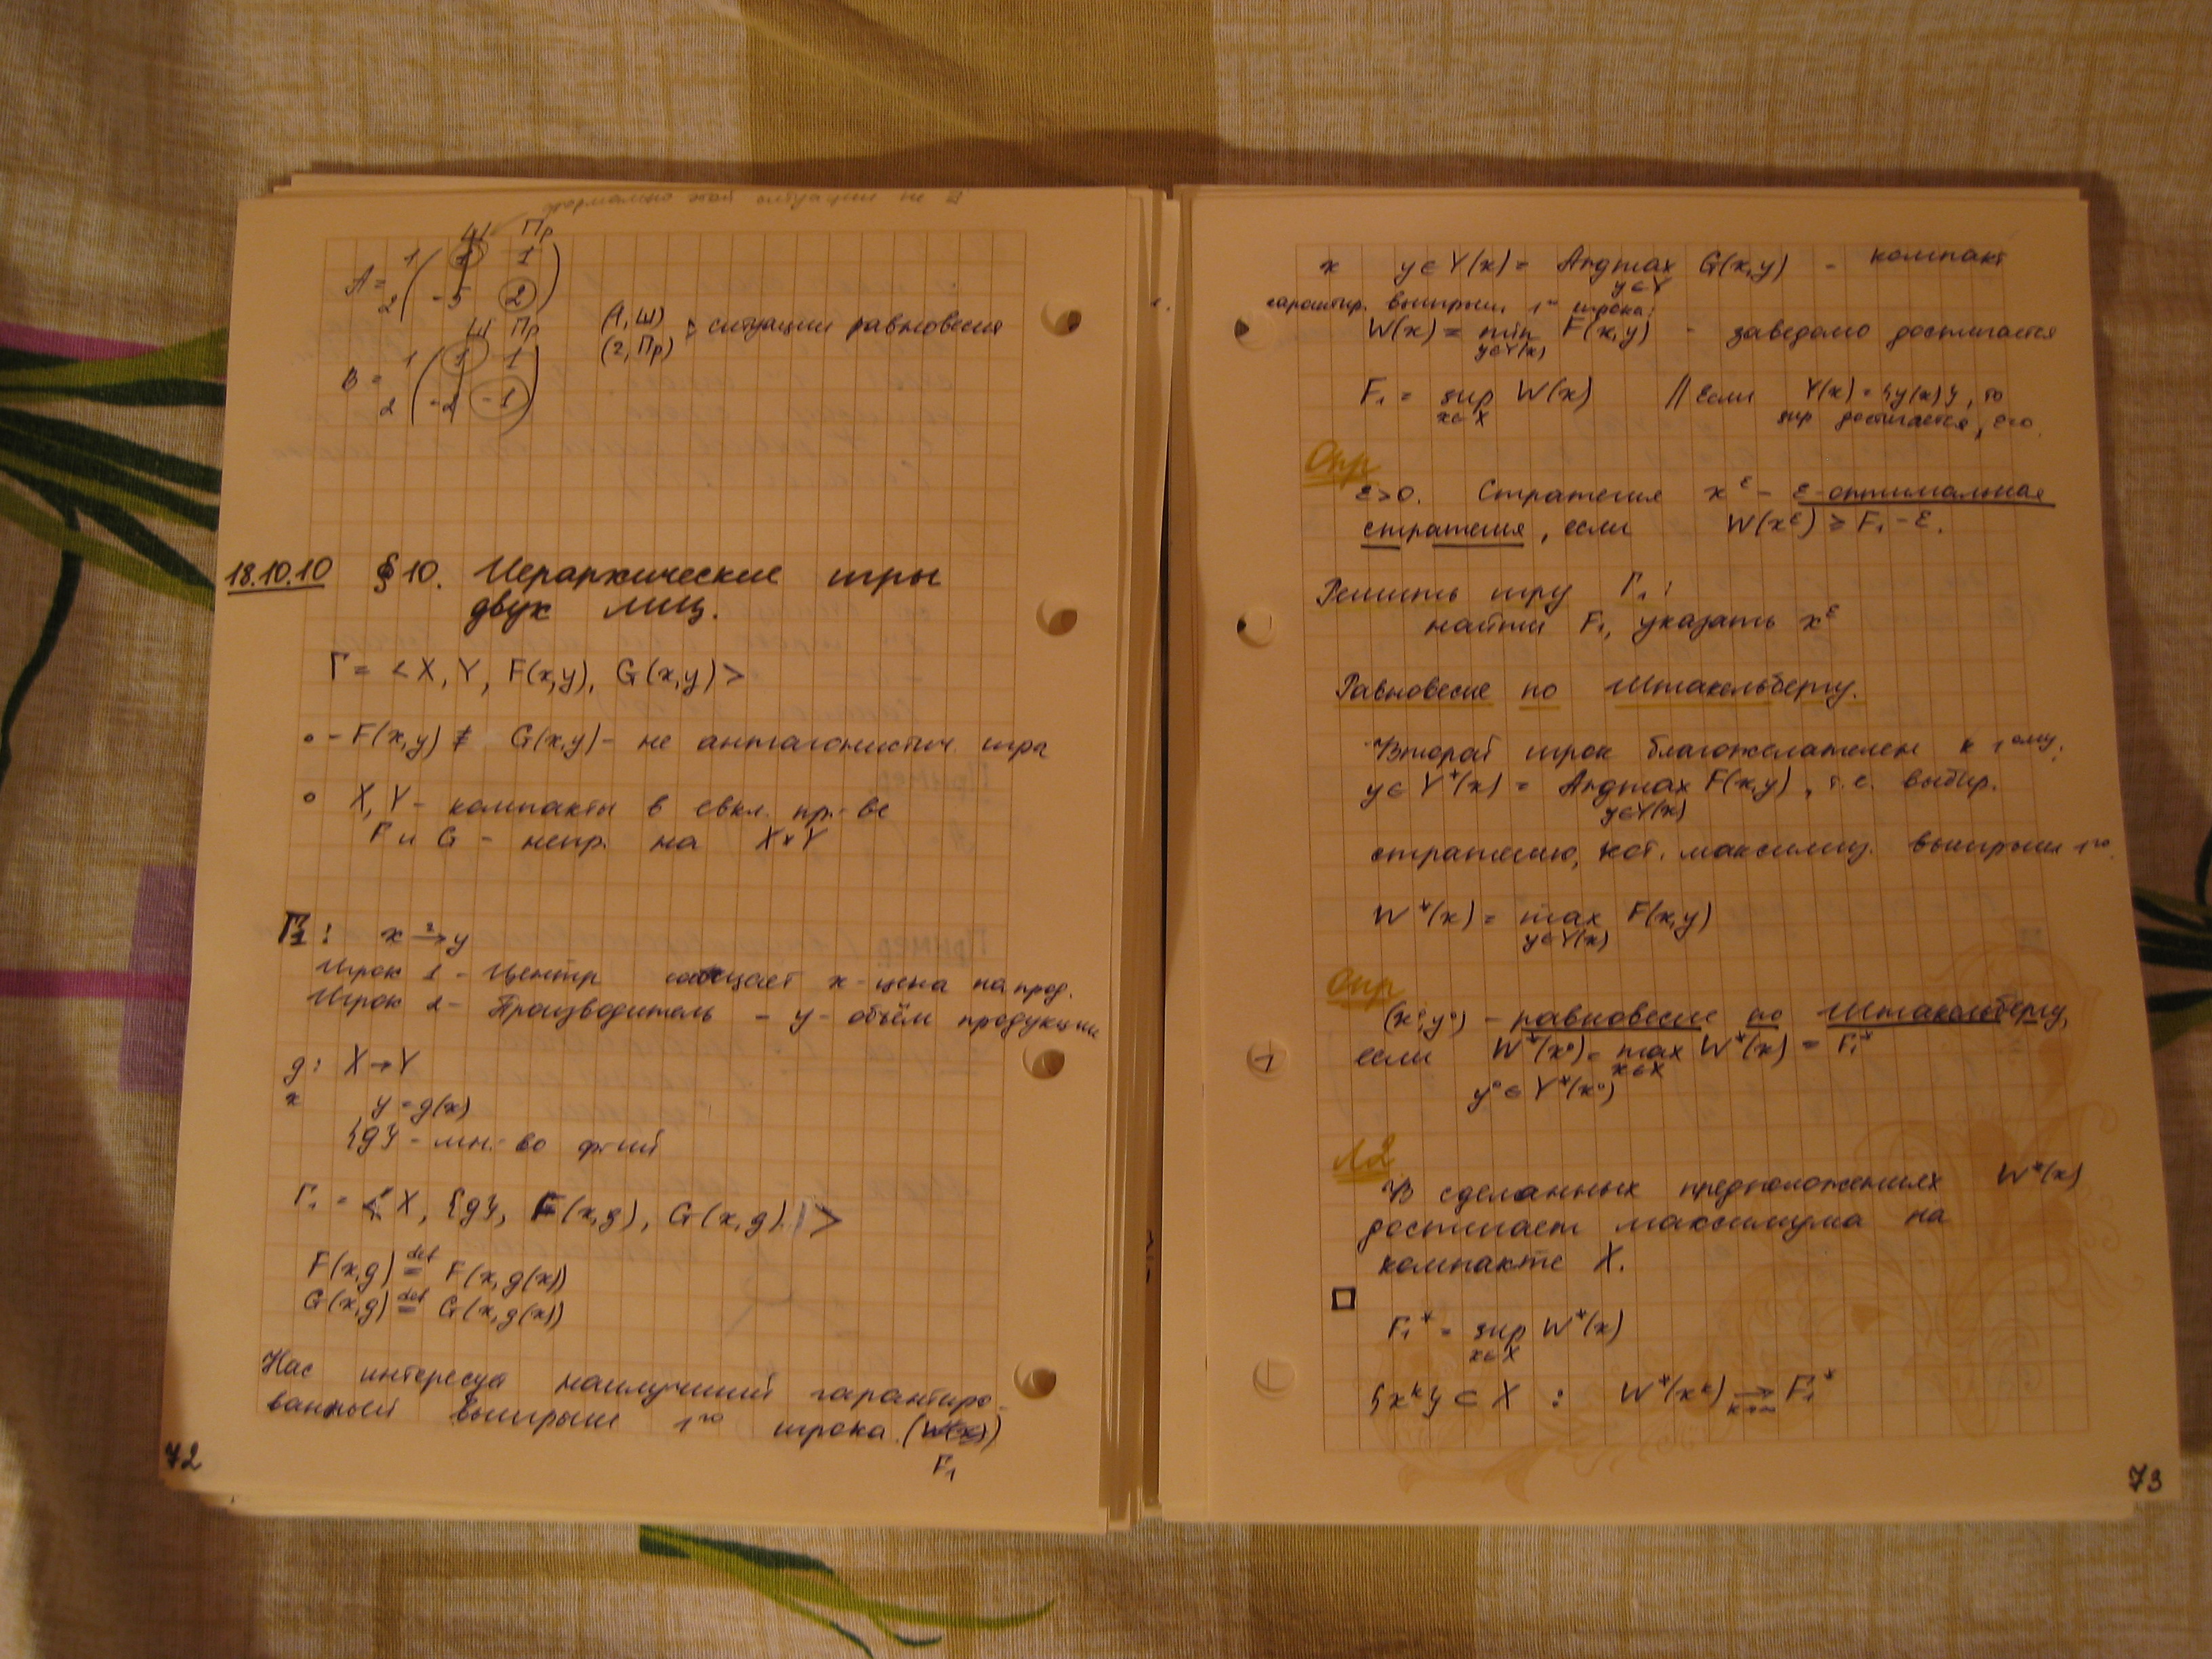 Ш Пр
A = 1 ( 1 1 )
2 ( -5 2 )
Ш Пр
B = 1 ( 1 1 )
2 ( -2 -1 )
(1, Ш)
(2, Пр) : ситуации равновесия
18.10.10 §10. Иерархические игры
двух лиц.
Γ = < X, Y, F(x,y), G(x,y) >
∘ - F(x,y) ≢ G(x,y) - не антагонистич. игра
∘ X, Y - компакты в евкл. пр-ве
F и G - непр. на X×Y
Γ₁ : x →² y
Игрок 1 - Центр сообщает x - цена на прод.
Игрок 2 - Производитель - y - объём продукции
g : X → Y
x y = g(x)
{g} - мн-во ф-ций
Γ₁ = < X, {g}, F(x,g), G(x,g) >
F(x,g) def= F(x, g(x))
G(x,g) def= G(x, g(x))
Нас интересует наилучший гарантиро-
ванный выигрыш 1го игрока. (W(x))
F₁
72
x y ∈ Y(x) = Argmax G(x,y) - компакт
y∈Y
гарантир. выигрыш 1го игрока:
W(x) = min F(x,y) - заведомо достигается
y∈Y(x)
F₁ = sup W(x) // Если Y(x) = {y(x)}, то
x∈X sup достигается,
Опр
ε>0. Стратегия x^ε - ε-оптимальная
стратегия, если W(x^ε) ≥ F₁ - ε.
Решить игру Γ₁ :
найти F₁, указать x^ε
Равновесие по Штакельбергу.
Второй игрок благожелателен к 1ому.
y ∈ Y*(x) = Argmax F(x,y), т.е. выбир.
y∈Y(x)
стратегию, кот. максимиз. выигрыш 1го.
W*(x) = max F(x,y)
y∈Y(x)
Опр
(x⁰, y⁰) - равновесие по Штакельбергу,
если W*(x⁰) = max W*(x) = F₁*
x∈X
y⁰ ∈ Y*(x⁰)
Л2
В сделанных предположениях W*(x)
достигает максимума на
компакте X.
□
F₁* = sup W*(x)
x∈X
{x^k} ⊂ X : W*(x^k) → F₁*
k→∞
73